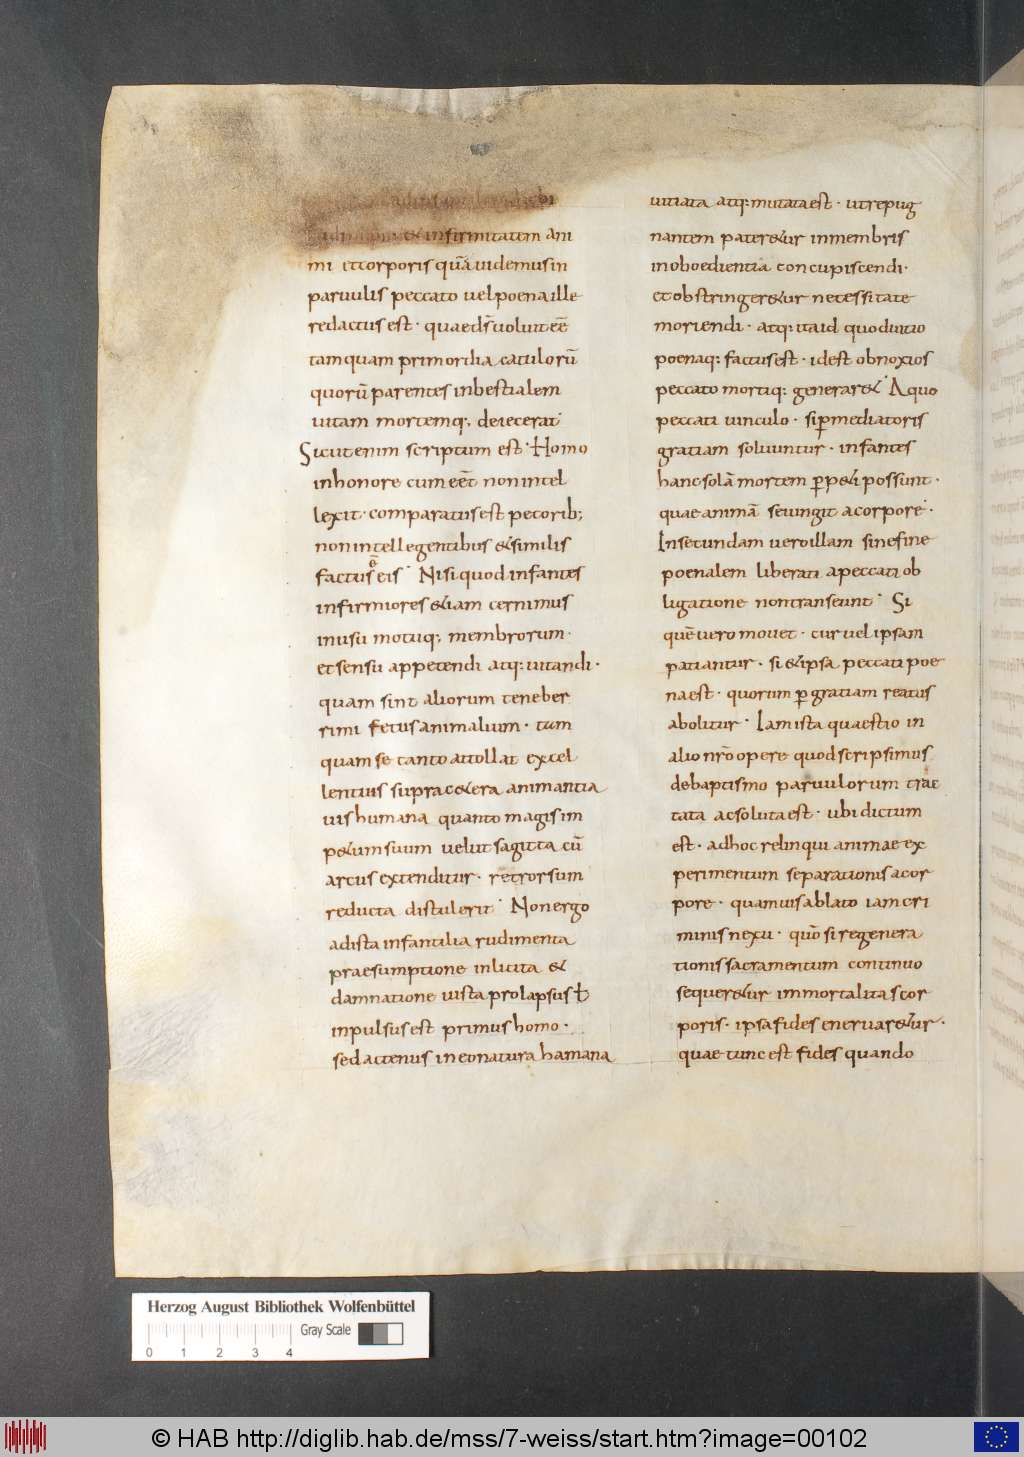 et infirmitatem ani
mi et corporis quā uidemus in
paruulis peccato uel poena ille
redactus est · quae d̄s uoluit eē
tamquam primordia catulorū
quorū parentes in bestialem
uitam mortemq; deiecerat
Sicut enim scriptum est · Homo
in honore cum eēt non intel
lexit · comparatus est pecorib;
non intellegentibus & similis
factus ē eis · Nisi quod infantes
infirmiores &iam cernimus
in usu motuq; membrorum ·
et sensu appetendi atq: uitandi ·
quam sint aliorum teneber
rimi fetus animalium · tam
quam se tanto attollat excel
lentius supra c&era animantia
uis humana quanto magis im
p&um suum uelut sagitta cū
arcus extenditur · retrorsum
reducta distulerit · Non ergo
ad ista infantilia rudimenta
praesumptione inlicita &
damnatione iusta prolapsus ł
inpulsus est primus homo ·
sed actenus in eo natura hamana
uitiata atq: mutata est · ut repug
nantem pater&ur in membris
inoboedientia concupiscendi ·
et obstringer&ur necessitate
moriendi · atq: ita id quod uitio
poenaq: factus est · id est obnoxios
peccato mortiq: generar& · A quo
peccati uinculo · si p̱ mediatoris
gratiam soluuntur · infantes
hanc solā mortem p̱p&i possunt ·
quae animā seiungit a corpore ·
In secundam uero illam sine fine
poenalem liberati a peccati ob
ligatione non transeunt · Si
quē uero mouet · cur uel ipsam
patiantur · si & ipsa peccati poe
na est · quorum p̱ gratiam reatus
abolitur · Iam ista quaestio in
alio nr̄o opere quod scripsimus
de baptismo paruulorum trac
tata ac soluta est · ubi dictum
est · adhoc relinqui animae ex
perimentum separationis a cor
pore · quamuis ablato iam cri
minis nexu · quō si regenera
tionis sacramentum continuo
sequer&ur immortalitas cor
poris · ipsa fides eneruar&ur ·
quae tunc est fides quando
Herzog August Bibliothek Wolfenbüttel
Gray Scale
0 1 2 3 4
© HAB http://diglib.hab.de/mss/7-weiss/start.htm?image=00102